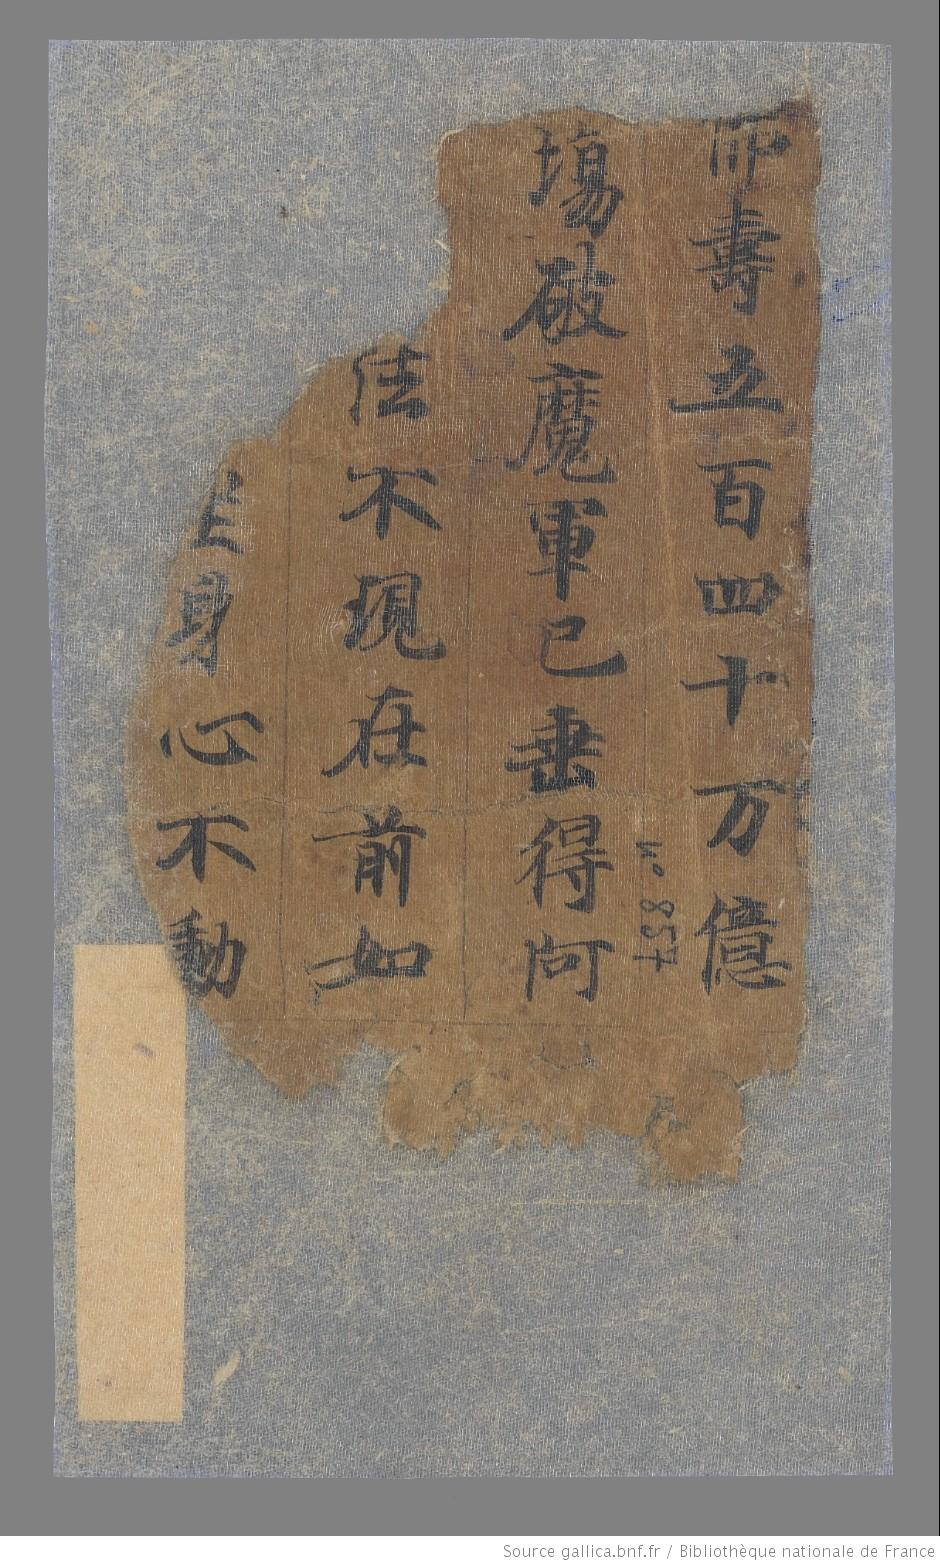 壽五百四十万億
塲破魔軍已垂得阿
法不現在前如
坐身心不動
No 857
Source gallica.bnf.fr / Bibliothèque nationale de France